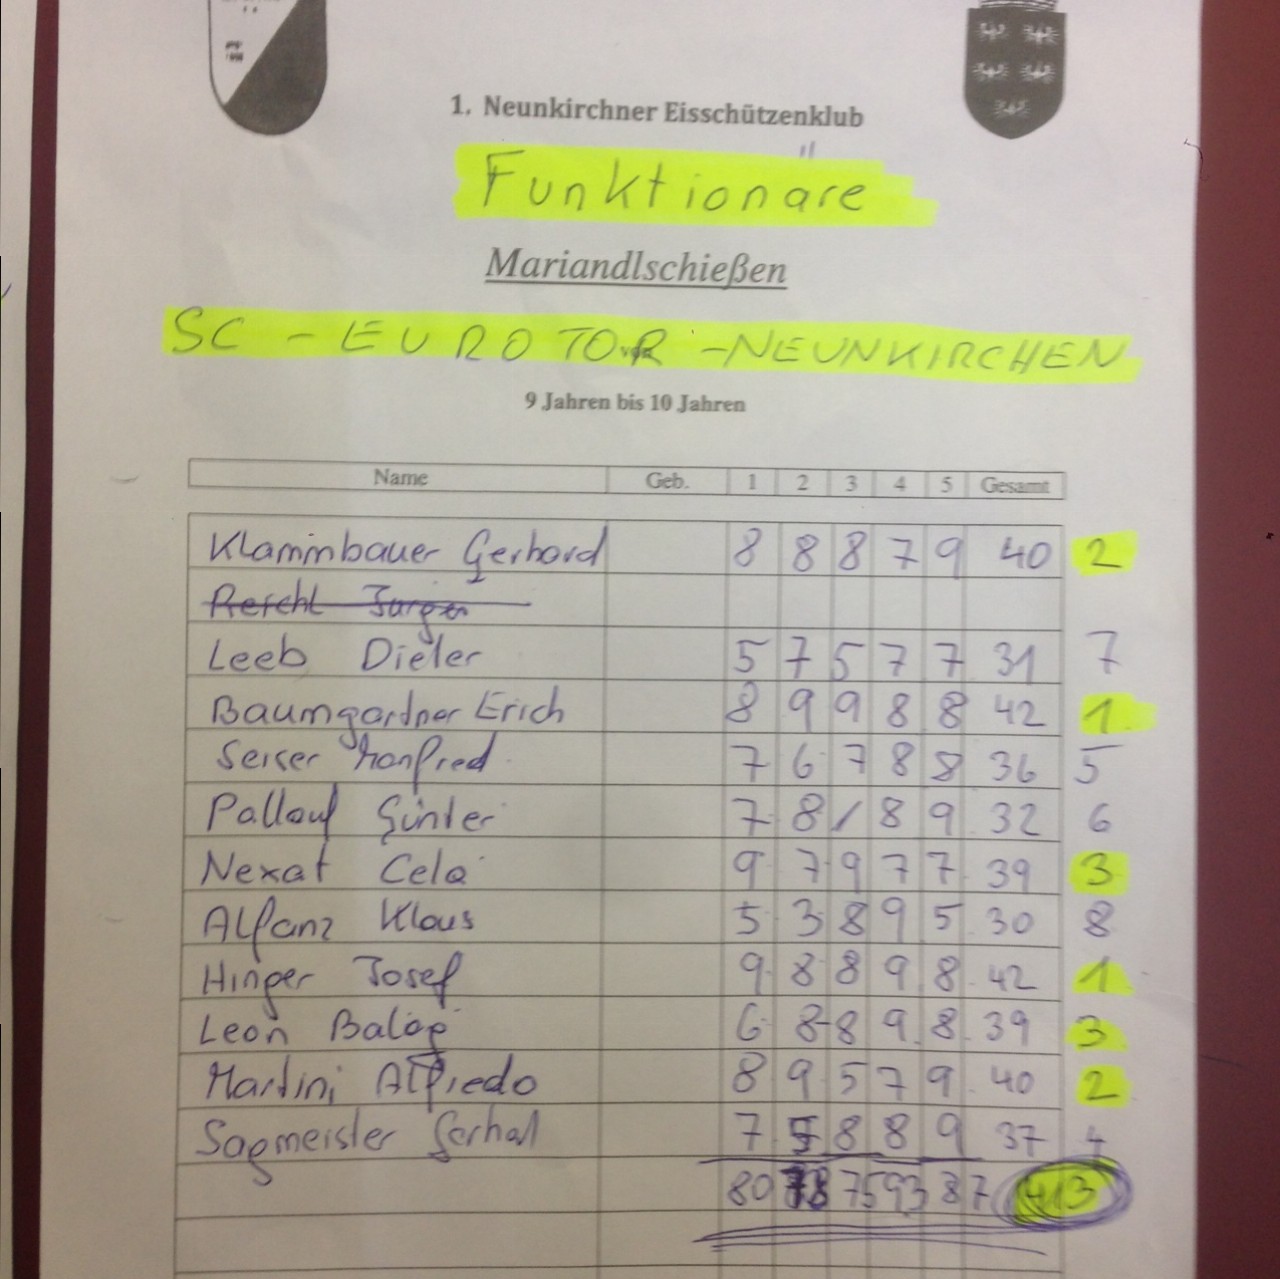 1. Neunkirchner Eisschützenklub
Funktionäre
Mariandlschießen
SC - EUROTOR - NEUNKIRCHEN
9 Jahren bis 10 Jahren
Name Geb. 1 2 3 4 5 Gesamt
Klammbauer Gerhard 8 8 8 7 9 40 2
Leeb Dieter 5 7 5 7 7 31 7
Baumgartner Erich 8 9 9 8 8 42 1.
Seiser Manfred 7 6 7 8 8 36 5
Pallauf Günter 7 8 / 8 9 32 6
Nexat Cela 9 7 9 7 7 39 3
Alfanz Klaus 5 3 8 9 5 30 8
Hinger Josef 9 8 8 9 8 42 1
Leon Balog 6 8 8 9 8 39 3
Martini Alfredo 8 9 5 7 9 40 2
Sagmeister 7 5 8 8 9 37 4
80 78 75 93 87 413